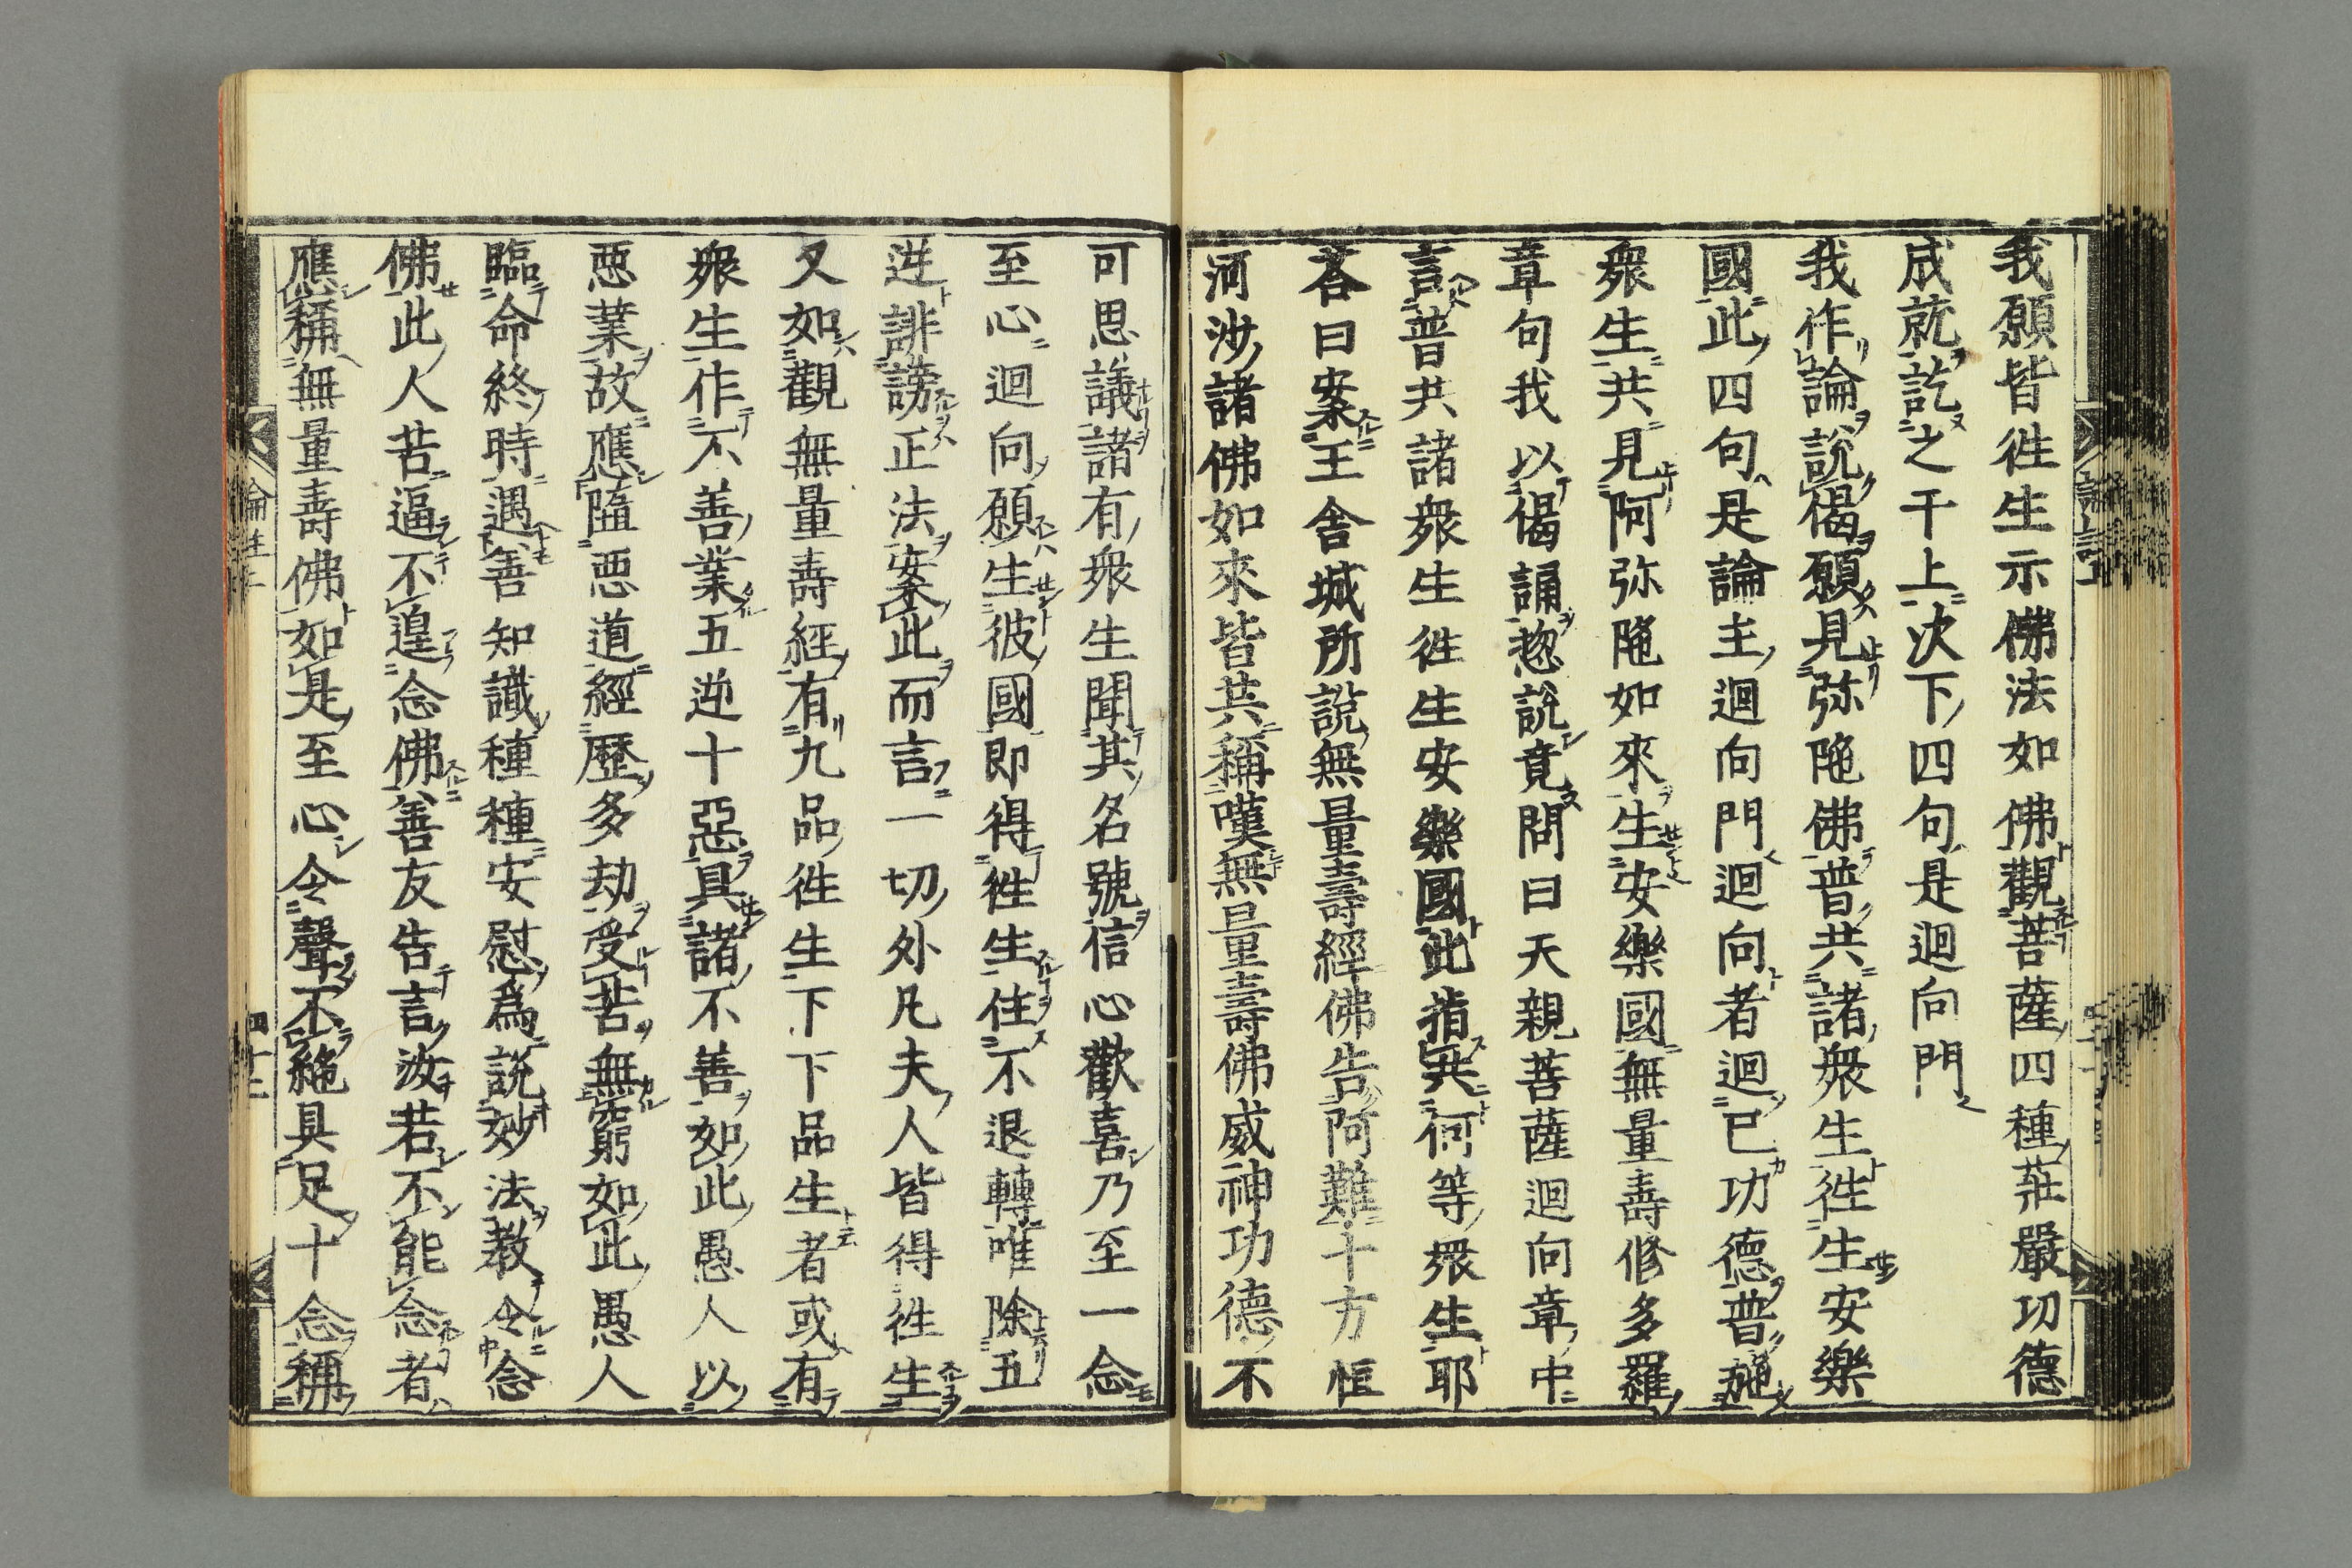 我願皆徃生示佛法如佛觀菩薩四種莊嚴功德
成就訖之干上次下四句是迴向門
我作論說偈願見弥陁佛普共諸衆生徃生安樂
國此四句是論主迴向門迴向者迴已功德普施
衆生共見阿弥陁如來生安樂國無量壽修多羅
章句我以偈誦揔說竟問曰天親菩薩迴向章中
言普共諸衆生徃生安樂國此指共何等衆生耶
荅曰案王舍城所說無量壽經佛告阿難十方恒
河沙諸佛如來皆共稱嘆無量壽佛威神功德不
可思議諸有衆生聞其名號信心歡喜乃至一念
至心迴向願生彼國即得徃生住不退轉唯除五
逆誹謗正法案此而言一切外凡夫人皆得徃生
又如觀無量壽經有九品徃生下下品生者或有
衆生作不善業五逆十惡具諸不善如此愚人以
惡業故應墮惡道經歷多劫受苦無窮如此愚人
臨命終時遇善知識種種安慰爲說妙法教令念
佛此人苦逼不遑念佛善友告言汝若不能念者
應稱無量壽佛如是至心令聲不絶具足十念稱